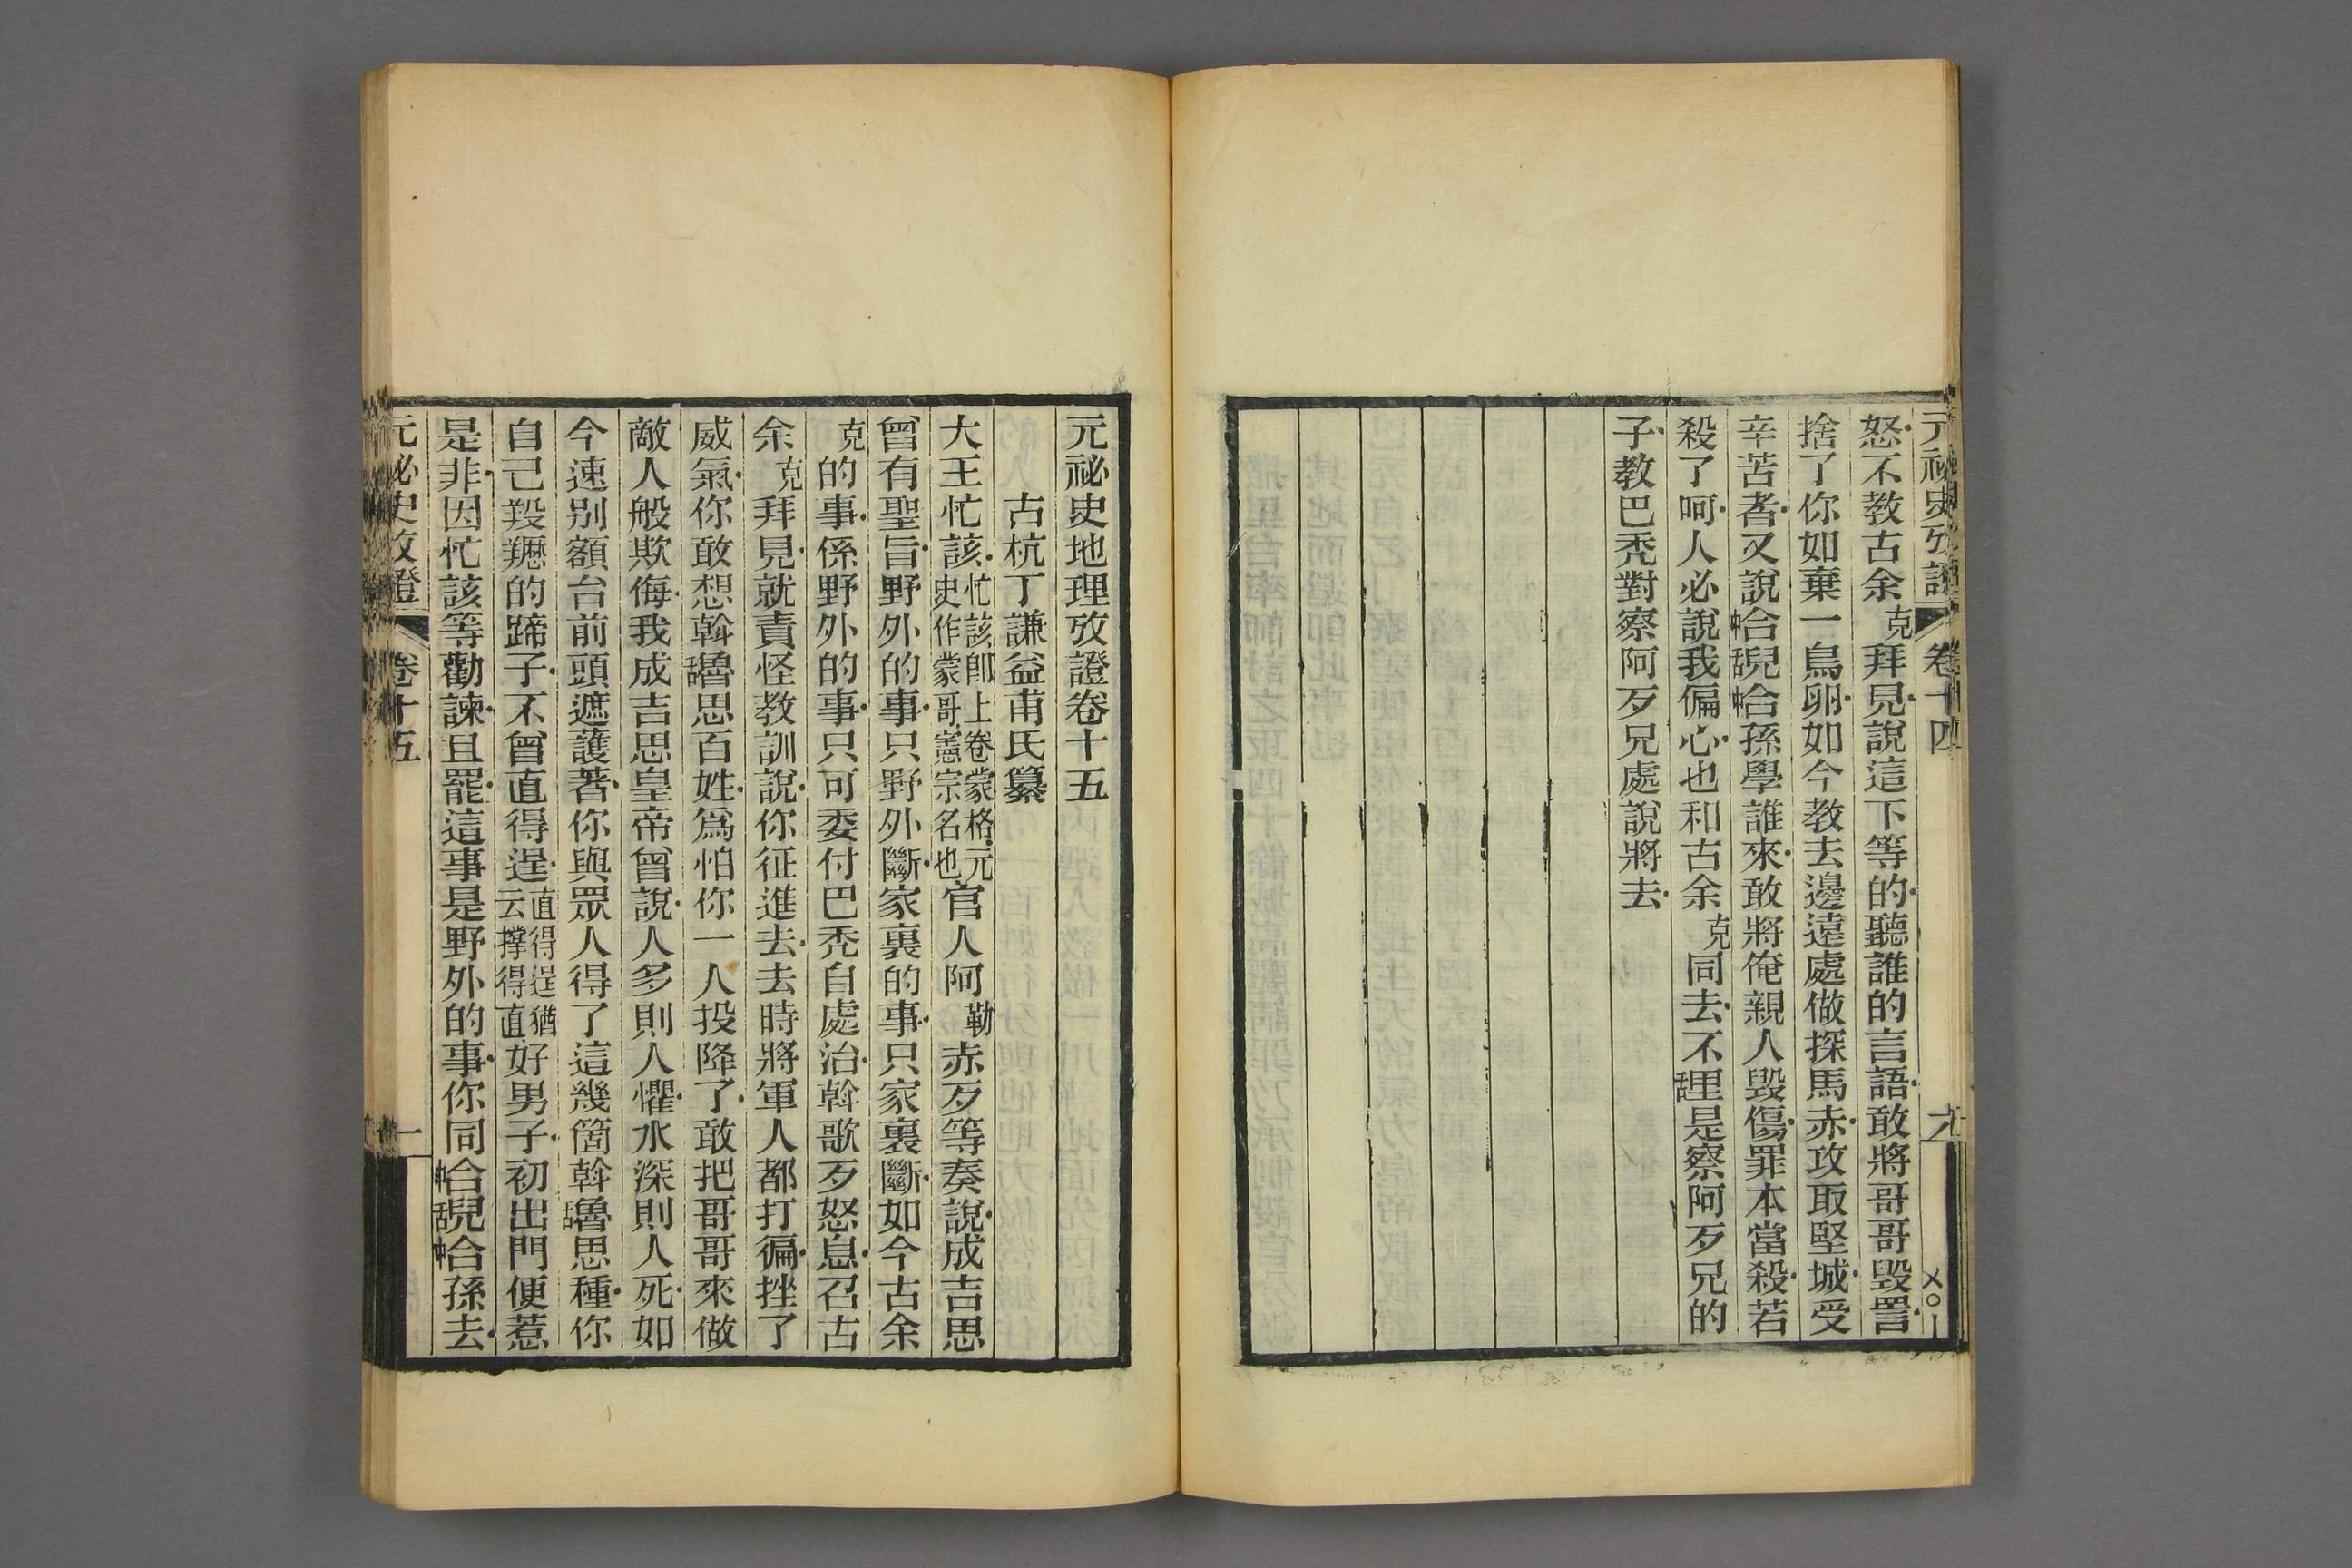 元祕史攷證 卷十四 六
怒不教古余克拜見說這下等的聽誰的言語敢將哥哥毀詈
捨了你如棄一鳥卵如今教去邊遠處做探馬赤攻取堅城受
辛苦者又說中合舌兒中合孫學誰來敢將俺親人毀傷罪本當殺若
殺了呵人必說我偏心也和古余克同去不舌里是察阿歹兄的
子教巴禿對察阿歹兄處說將去
元祕史地理攷證卷十五
古杭丁謙益甫氏纂
大王忙該忙該卽上卷蒙格元史作蒙哥憲宗名也官人阿勒赤歹等奏說成吉思
曾有聖旨野外的事只野外斷家裏的事只家裏斷如今古余
克的事係野外的事只可委付巴禿自處治斡歌歹怒息召古
余克拜見就責怪教訓說你征進去去時將軍人都打徧挫了
威氣你敢想斡舌魯思百姓爲怕你一人投降了敢把哥哥來做
敵人般欺侮我成吉思皇帝曾說人多則人懼水深則人死如
今速別額台前頭遮護著你與眾人得了這幾箇斡舌魯思種你
自己羖䍽的蹄子不曾直得逞直得逞猶云撐得直好男子初出門便惹
是非因忙該等勸諫且罷這事是野外的事你同中合舌兒中合孫去
元祕史攷證 卷十五 一